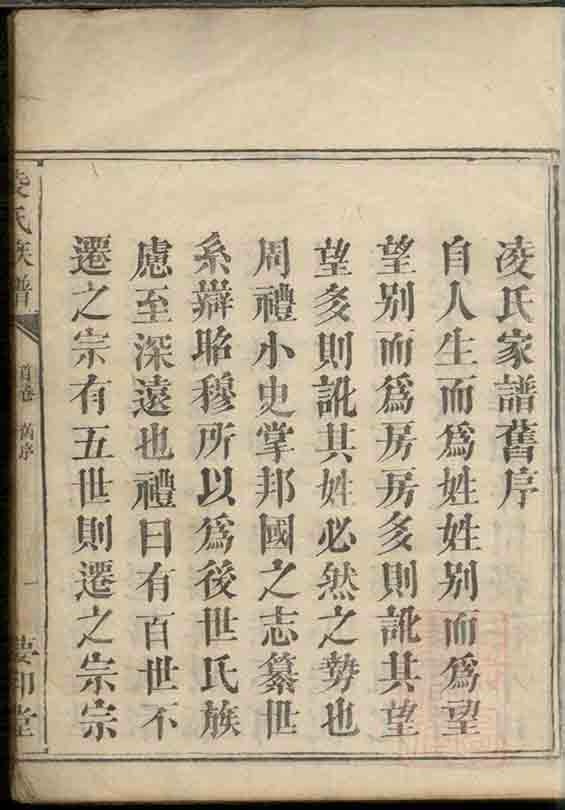 凌氏家譜舊序
自人生而爲姓姓别而爲望
望别而爲房房多則訛其望
望多則訛其姓必然之勢也
周禮小史掌邦國之志纂世
系辯昭穆所以爲後世氏族
慮至深遠也禮曰有百世不
遷之宗有五世則遷之宗宗
凌氏族譜
首卷 舊序
一
印堂